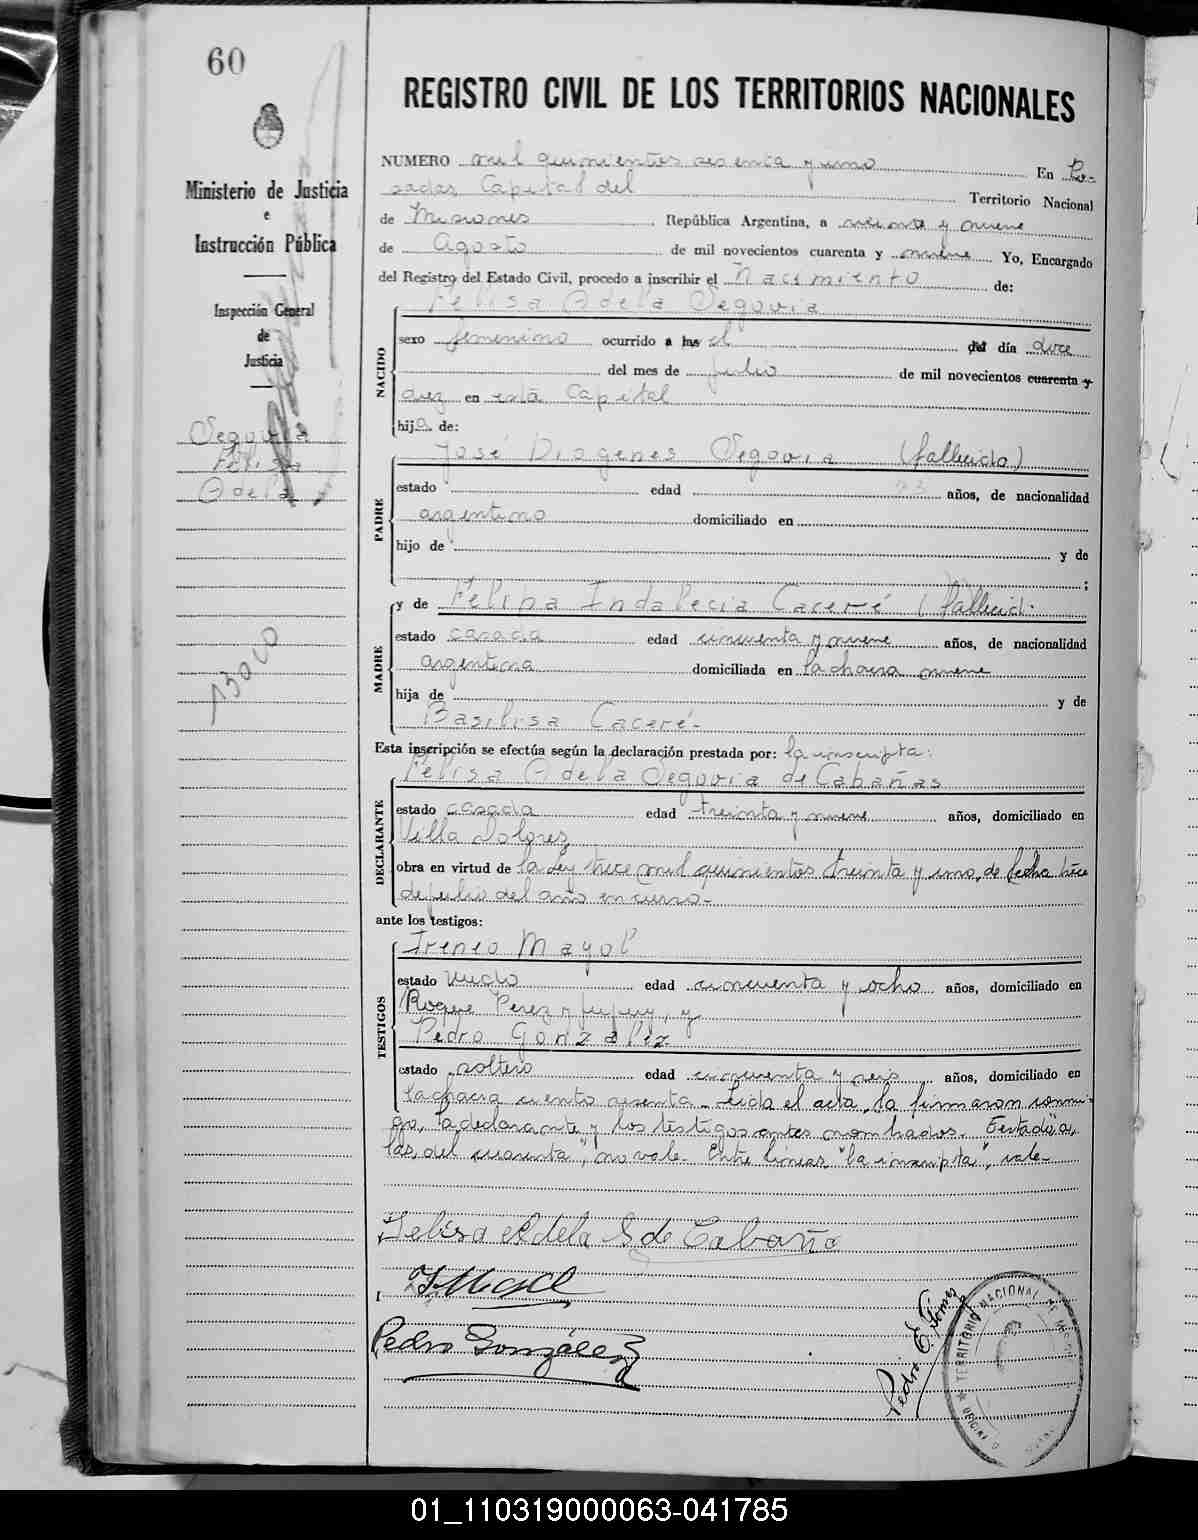 60
REGISTRO CIVIL DE LOS TERRITORIOS NACIONALES
Ministerio de Justicia
e
Instrucción Pública
Inspección General
de
Justicia
Segovia
Felisa
Adela
13010
NUMERO mil quinientos sesenta y uno En Po-
sadas, Capital del Territorio Nacional
de Misiones República Argentina, a veinte y nueve
de Agosto de mil novecientos cuarenta y nueve Yo, Encargado
del Registro del Estado Civil, procedo a inscribir el Nacimiento de:
NACIDO
Felisa Adela Segovia
sexo femenino ocurrido a las el del día doce
del mes de julio de mil novecientos cuarenta y
diez en esta Capital
hija de:
PADRE
José Diogenes Segovia (fallecido)
estado edad años, de nacionalidad
argentino domiciliado en
hijo de y de
;
MADRE
y de Felipa Indalecia Caceré (fallecid.
estado casada edad cincuenta y nueve años, de nacionalidad
argentina domiciliada en la chacra nueve
hija de y de
Basilisa Caceré-
Esta inscripción se efectúa según la declaración prestada por: la inscripta:
DECLARANTE
Felisa Adela Segovia de Cabañas
estado casada edad treinta y nueve años, domiciliado en
Villa Dolores
obra en virtud de la Ley trece mil quinientos treinta y uno, de fecha trece
de julio del año en curso.-
ante los testigos:
TESTIGOS
Ireneo Mayol
estado viudo edad cincuenta y ocho años, domiciliado en
Roque Perez y Jujuy, y
Pedro Gonzalez
estado soltero edad cincuenta y seis años, domiciliado en
la chacra ciento sesenta_ Leida el acta, la firmaron conmi-
go, la declarante y los testigos antes nombrados. Testado "a,
las, del cuarenta", no vale. Entre lineas "la inscripta", vale-
Felisa Adela S de Cabaña
Pedro González
Pedro E. Gómez
TERRITORIO NACIONAL DE
01_110319000063-041785